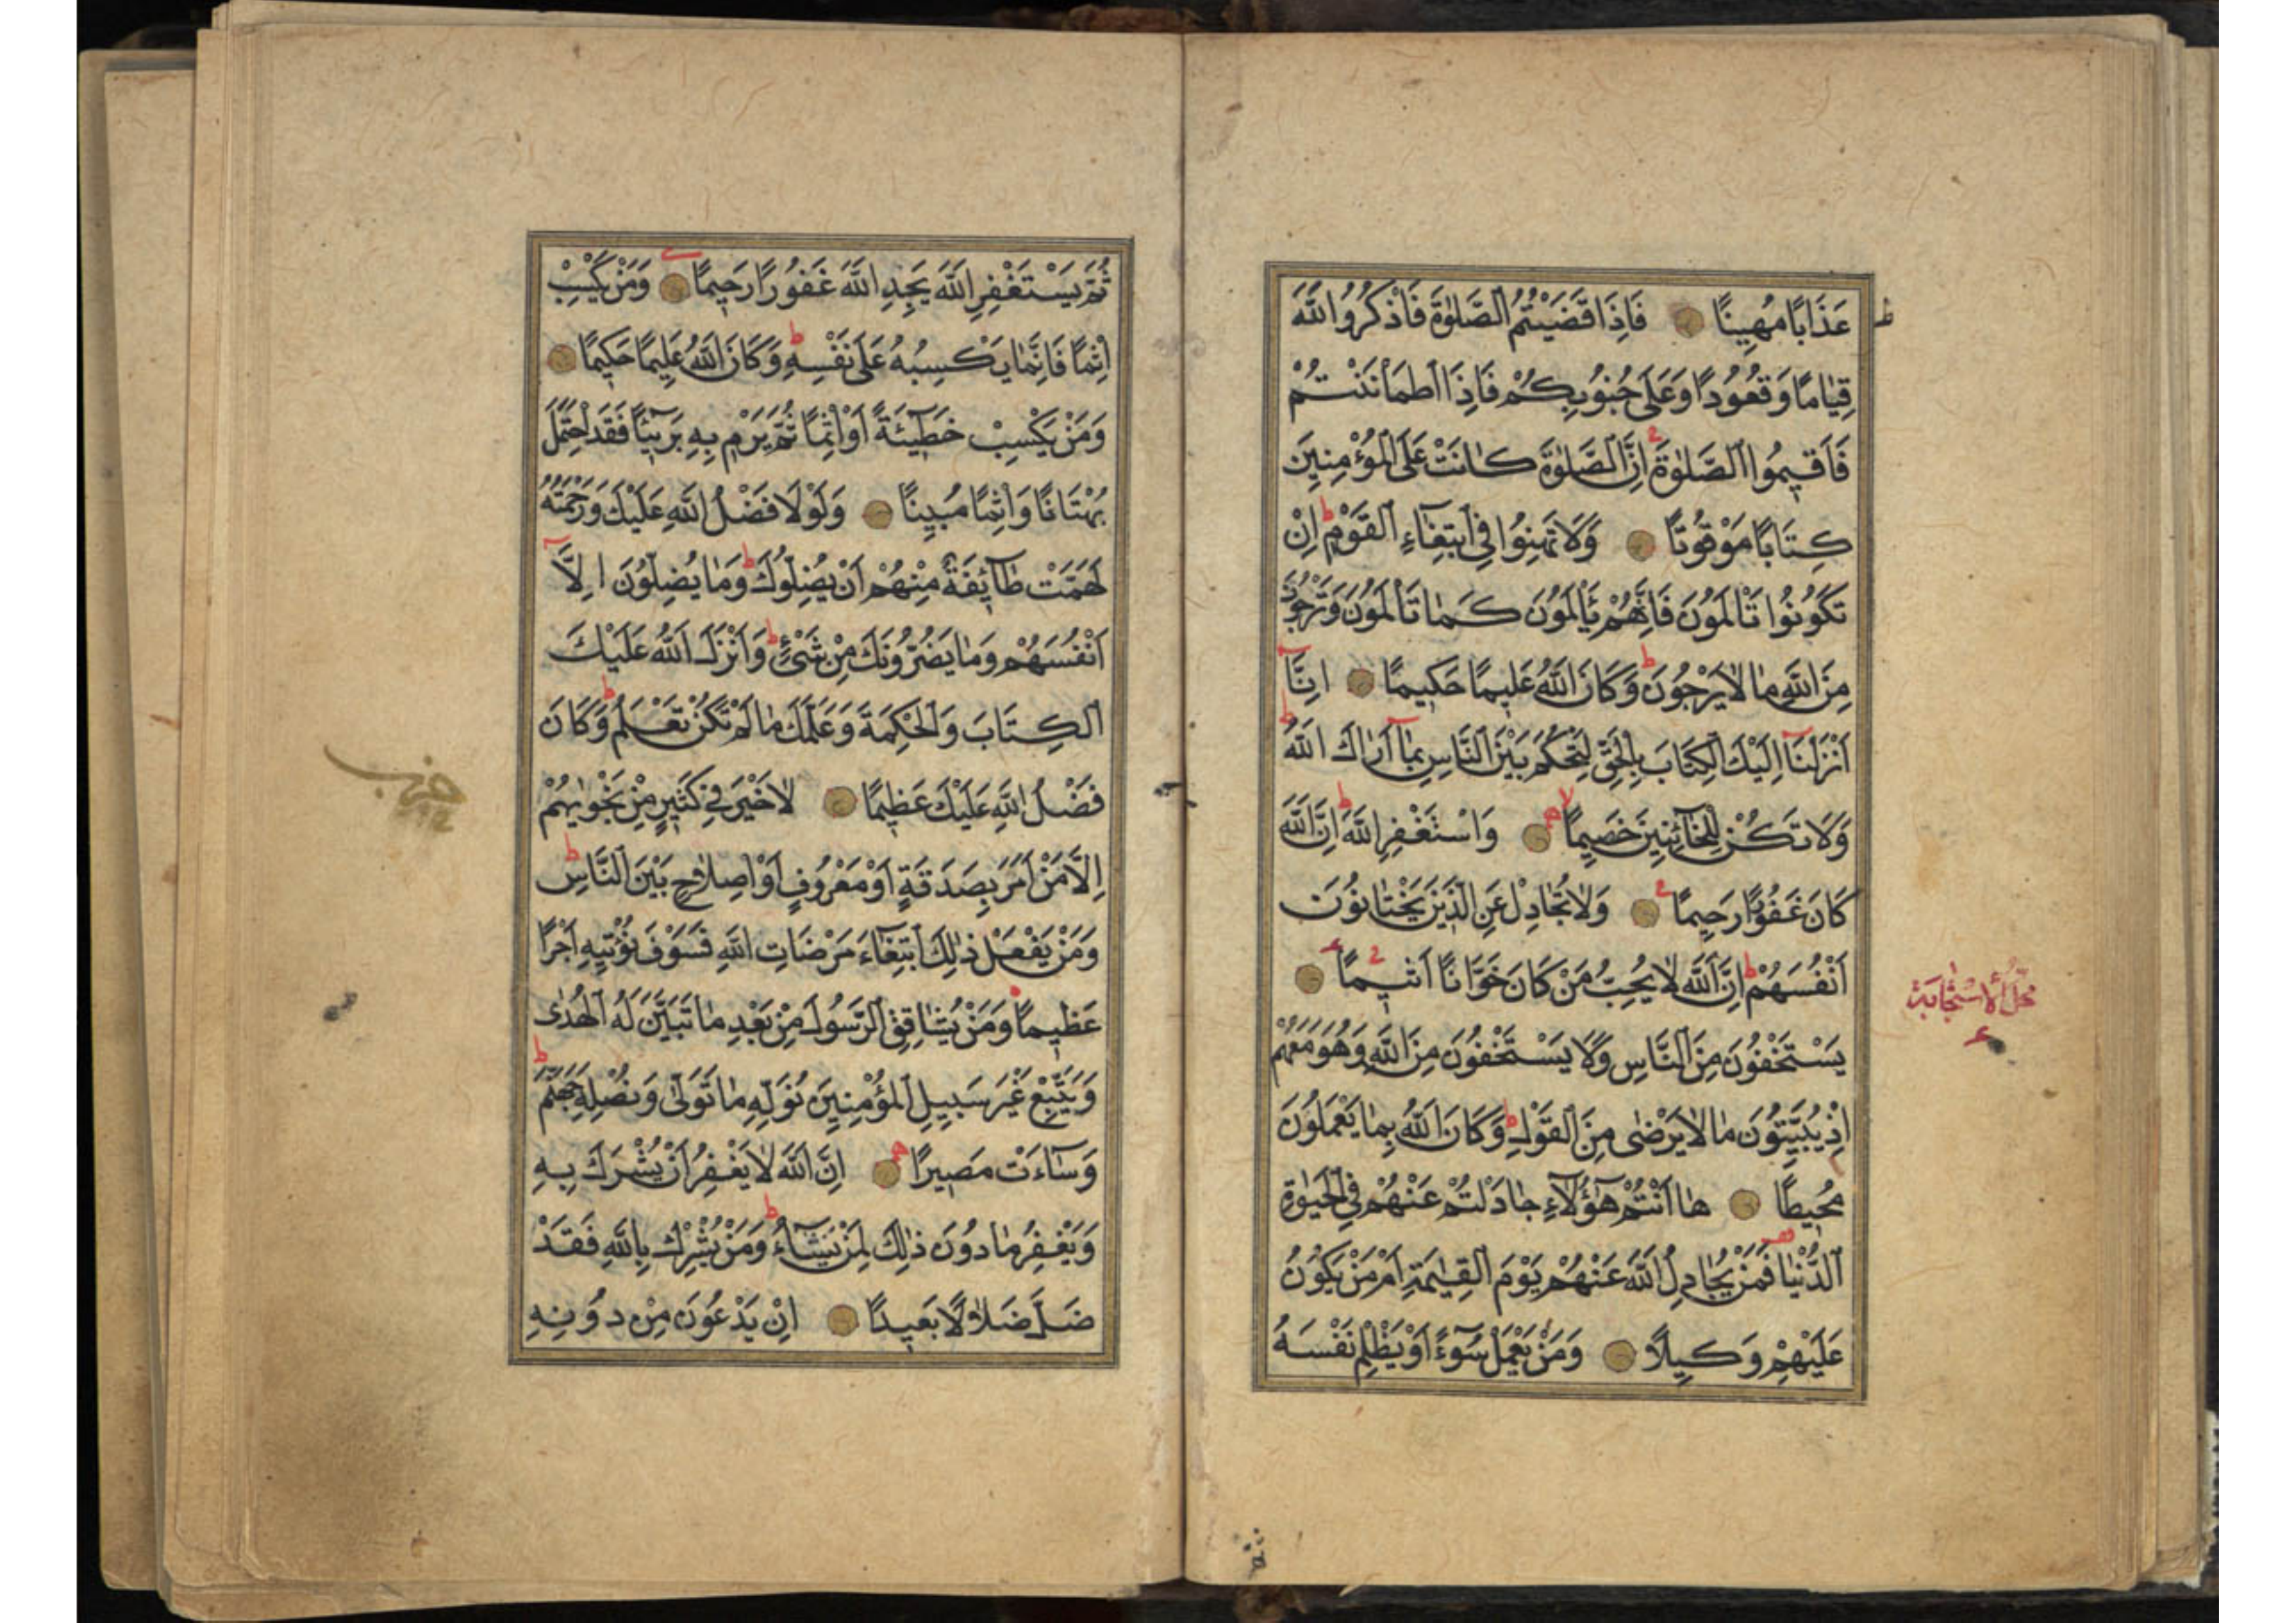 عَذَابًا مُهِينًا فَاِذَا قَضَيْتُمُ الصَّلٰوةَ فَاذْكُرُوا اللّٰهَ
قِيَامًا وَقُعُودًا وَعَلٰى جُنُوبِكُمْ فَاِذَا اطْمَأْنَنْتُمْ
فَاَقِيمُوا الصَّلٰوةَ اِنَّ الصَّلٰوةَ كَانَتْ عَلَى الْمُؤْمِنِينَ
كِتَابًا مَوْقُوتًا وَلَا تَهِنُوا فِى ابْتِغَاءِ الْقَوْمِ اِنْ
تَكُونُوا تَأْلَمُونَ فَاِنَّهُمْ يَأْلَمُونَ كَمَا تَأْلَمُونَ وَتَرْجُونَ
مِنَ اللّٰهِ مَا لَا يَرْجُونَ وَكَانَ اللّٰهُ عَلِيمًا حَكِيمًا اِنَّا
اَنْزَلْنَا اِلَيْكَ الْكِتَابَ بِالْحَقِّ لِتَحْكُمَ بَيْنَ النَّاسِ بِمَا اَرَاكَ اللّٰهُ
وَلَا تَكُنْ لِلْخَائِنِينَ خَصِيمًا وَاسْتَغْفِرِ اللّٰهَ اِنَّ اللّٰهَ
كَانَ غَفُورًا رَحِيمًا وَلَا تُجَادِلْ عَنِ الَّذِينَ يَخْتَانُونَ
اَنْفُسَهُمْ اِنَّ اللّٰهَ لَا يُحِبُّ مَنْ كَانَ خَوَّانًا اَثِيمًا
يَسْتَخْفُونَ مِنَ النَّاسِ وَلَا يَسْتَخْفُونَ مِنَ اللّٰهِ وَهُوَ مَعَهُمْ
اِذْ يُبَيِّتُونَ مَا لَا يَرْضٰى مِنَ الْقَوْلِ وَكَانَ اللّٰهُ بِمَا يَعْمَلُونَ
مُحِيطًا هَا اَنْتُمْ هٰؤُلَاءِ جَادَلْتُمْ عَنْهُمْ فِى الْحَيٰوةِ
الدُّنْيَا فَمَنْ يُجَادِلُ اللّٰهَ عَنْهُمْ يَوْمَ الْقِيٰمَةِ اَمْ مَنْ يَكُونُ
عَلَيْهِمْ وَكِيلًا وَمَنْ يَعْمَلْ سُوءًا اَوْ يَظْلِمْ نَفْسَهُ
محل الاستجابة
ثُمَّ يَسْتَغْفِرِ اللّٰهَ يَجِدِ اللّٰهَ غَفُورًا رَحِيمًا وَمَنْ يَكْسِبْ
اِثْمًا فَاِنَّمَا يَكْسِبُهُ عَلٰى نَفْسِهِ وَكَانَ اللّٰهُ عَلِيمًا حَكِيمًا
وَمَنْ يَكْسِبْ خَطِيئَةً اَوْ اِثْمًا ثُمَّ يَرْمِ بِهِ بَرِيئًا فَقَدِ احْتَمَلَ
بُهْتَانًا وَاِثْمًا مُبِينًا وَلَوْلَا فَضْلُ اللّٰهِ عَلَيْكَ وَرَحْمَتُهُ
لَهَمَّتْ طَائِفَةٌ مِنْهُمْ اَنْ يُضِلُّوكَ وَمَا يُضِلُّونَ اِلَّا
اَنْفُسَهُمْ وَمَا يَضُرُّونَكَ مِنْ شَىْءٍ وَاَنْزَلَ اللّٰهُ عَلَيْكَ
الْكِتَابَ وَالْحِكْمَةَ وَعَلَّمَكَ مَا لَمْ تَكُنْ تَعْلَمُ وَكَانَ
فَضْلُ اللّٰهِ عَلَيْكَ عَظِيمًا لَا خَيْرَ فِى كَثِيرٍ مِنْ نَجْوٰيهُمْ
اِلَّا مَنْ اَمَرَ بِصَدَقَةٍ اَوْ مَعْرُوفٍ اَوْ اِصْلَاحٍ بَيْنَ النَّاسِ
وَمَنْ يَفْعَلْ ذٰلِكَ ابْتِغَاءَ مَرْضَاتِ اللّٰهِ فَسَوْفَ نُؤْتِيهِ اَجْرًا
عَظِيمًا وَمَنْ يُشَاقِقِ الرَّسُولَ مِنْ بَعْدِ مَا تَبَيَّنَ لَهُ الْهُدٰى
وَيَتَّبِعْ غَيْرَ سَبِيلِ الْمُؤْمِنِينَ نُوَلِّهِ مَا تَوَلّٰى وَنُصْلِهِ جَهَنَّمَ
وَسَاءَتْ مَصِيرًا اِنَّ اللّٰهَ لَا يَغْفِرُ اَنْ يُشْرَكَ بِهِ
وَيَغْفِرُ مَا دُونَ ذٰلِكَ لِمَنْ يَشَاءُ وَمَنْ يُشْرِكْ بِاللّٰهِ فَقَدْ
ضَلَّ ضَلَالًا بَعِيدًا اِنْ يَدْعُونَ مِنْ دُونِهِ
حزب